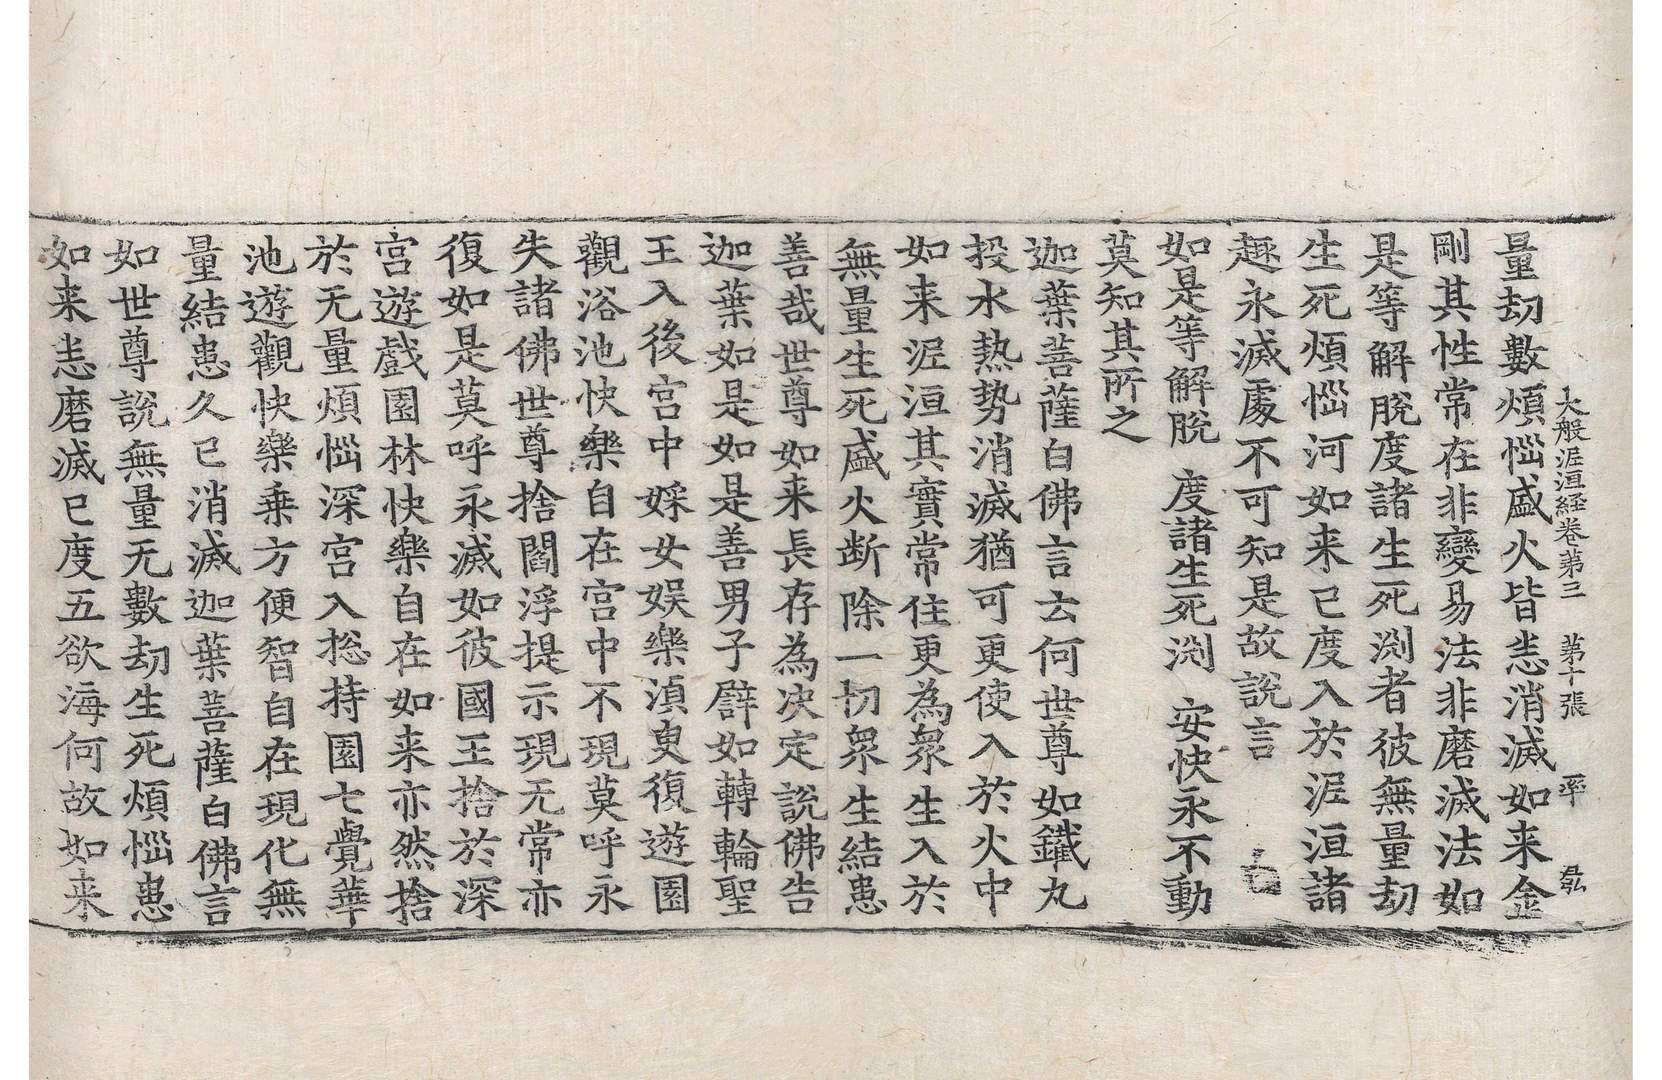 大般泥洹経卷第三 第十張 率
量劫數煩惱盛火皆悉消滅如来金
剛其性常在非變易法非磨滅法如
是等解脫度諸生死渕者彼無量劫
生死煩惱河如来已度入於泥洹諸
趣永滅處不可知是故說言
如是等解脫 度諸生死渕 安快永不動
莫知其所之
迦葉菩薩白佛言云何世尊如鐵丸
投水熱勢消滅猶可更使入於火中
如来泥洹其實常住更為衆生入於
無量生死盛火断除一切衆生結患
善哉世尊如来長存為决定說佛告
迦葉如是如是善男子譬如轉輪聖
王入後宮中婇女娱樂湏臾復遊園
觀浴池快樂自在宮中不現莫呼永
失諸佛世尊捨閻浮提示現无常亦
復如是莫呼永滅如彼國王捨於深
宮遊戲園林快樂自在如来亦然捨
於无量煩惱深宮入捴持園七覺華
池遊觀快樂乘方便智自在現化無
量結患久已消滅迦葉菩薩白佛言
如世尊說無量无數劫生死煩惱患
如来悉磨滅已度五欲海何故如来